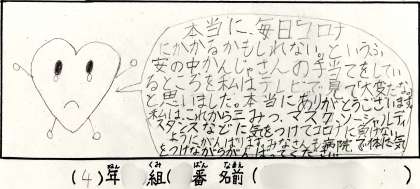 本当に、毎日コロナ
にかかるかもしれない。というふ
安の中かんじゃさんの手当てをしてい
るところを私はテレビで見て大変だな
と思いました。本当にありがとうございます
私は、これから三みつ、マスク、ソーシャルディ
スタンスなどに気をつけてコロナに負けない
ようにかんばります。みなさんも病院で体に気
をつけながらがんばってください。
(4)年 組(くみ) 番(ばん) 名前(なまえ)( )